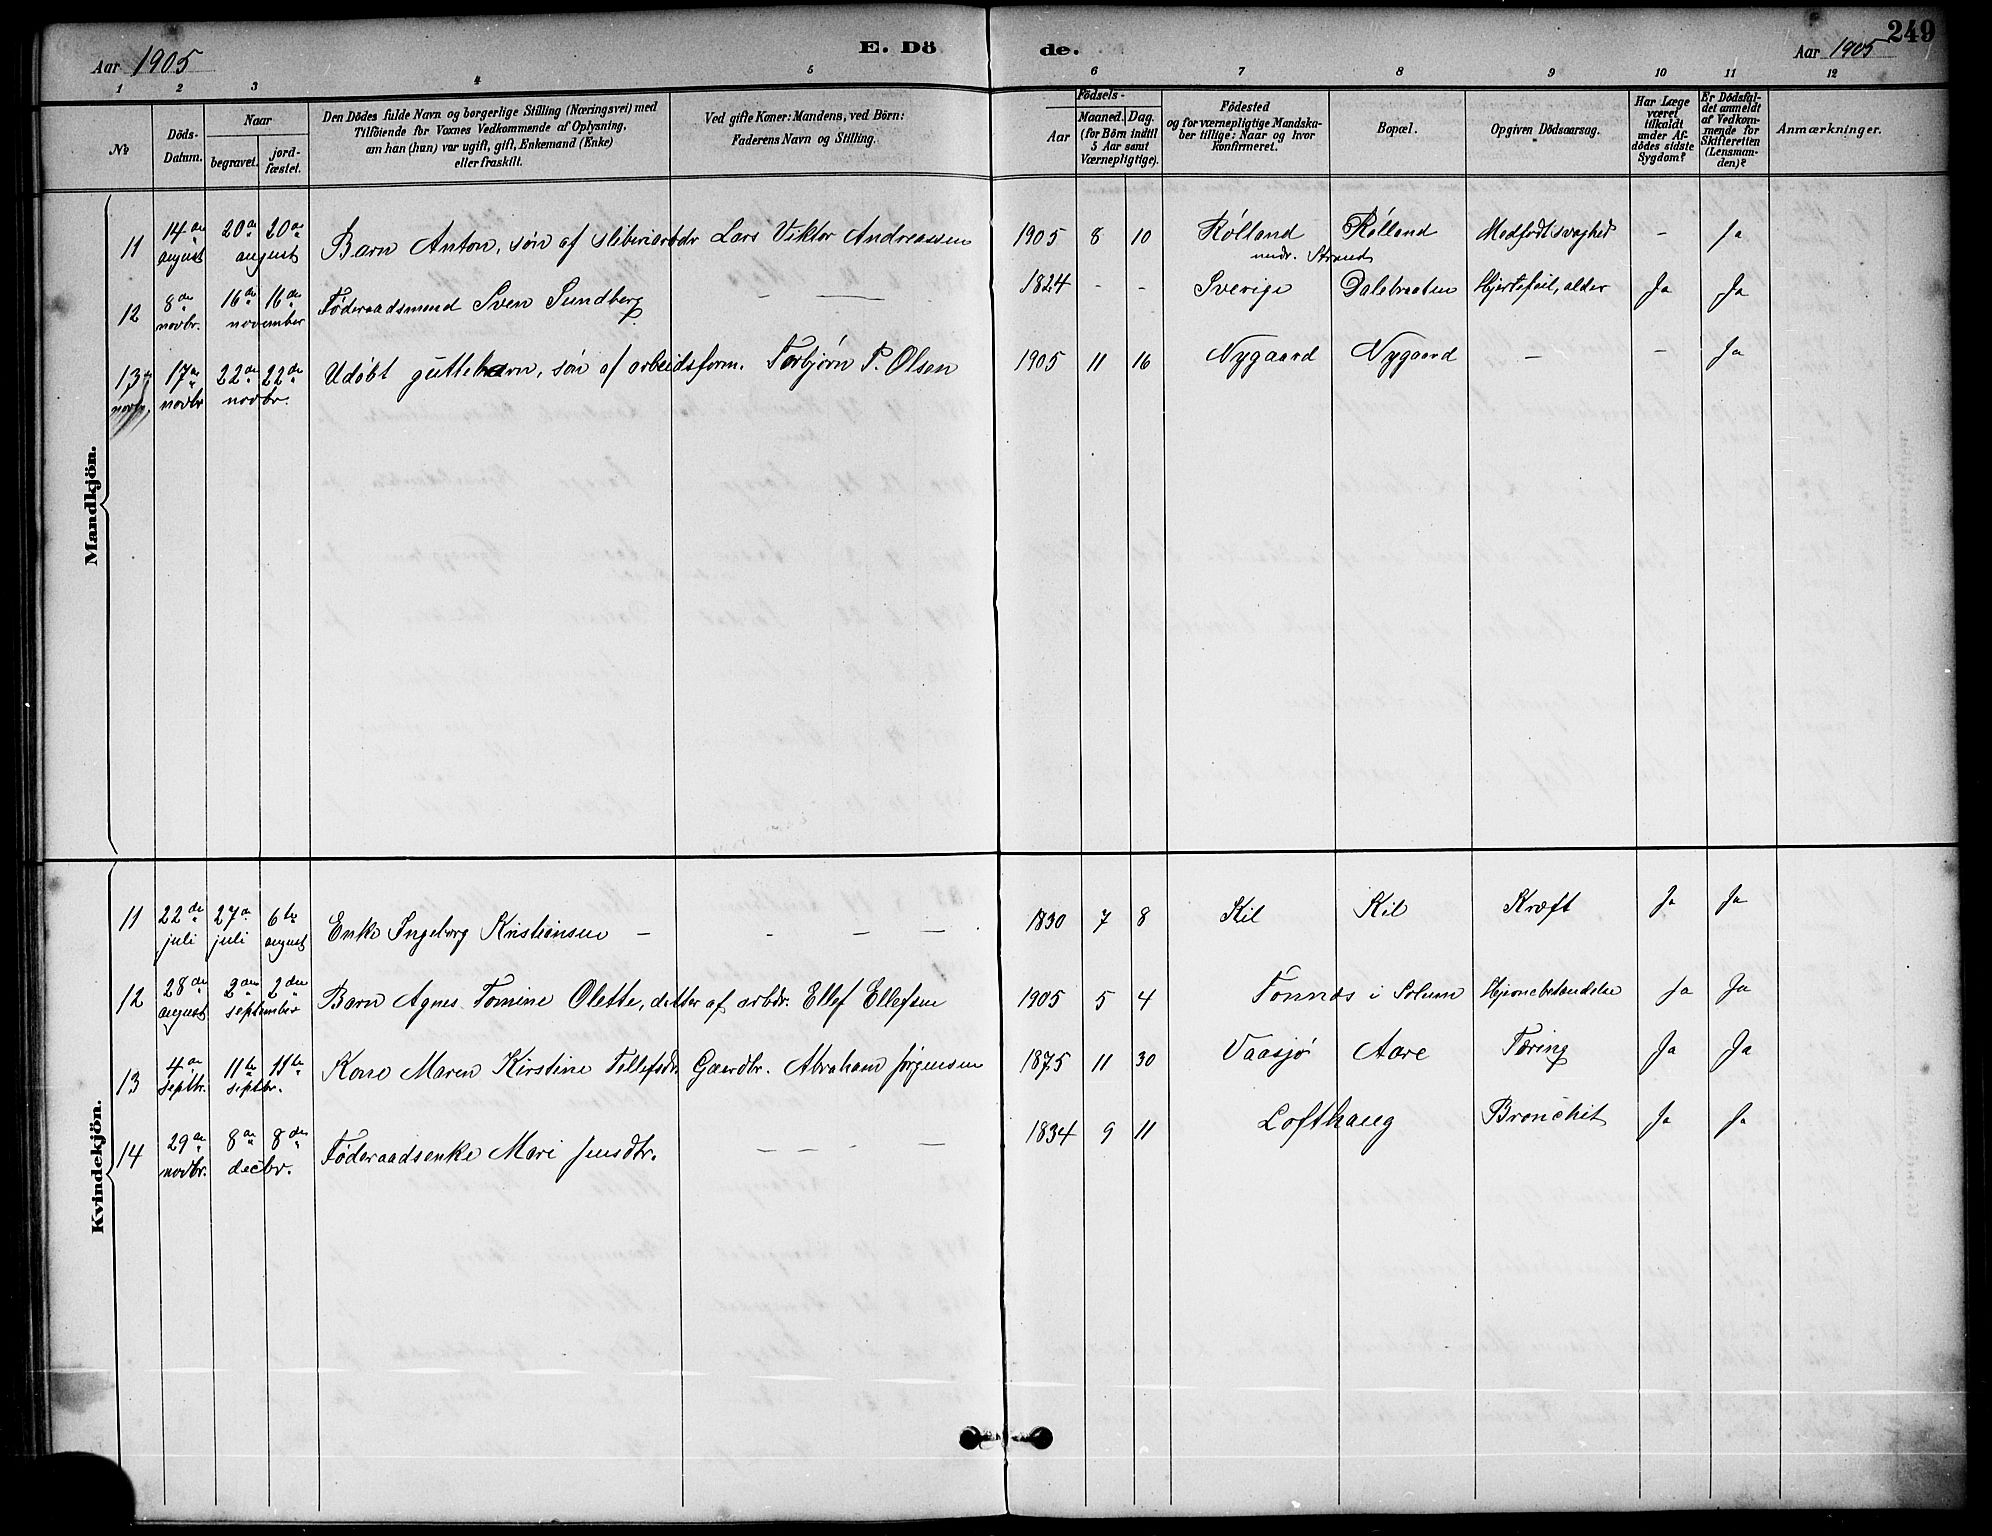 249
Aar 1905
E. Dö
de.
Aar 1905
1 2 3 4 5 6 7 8 9 10 11 12
No
Döds-Datum.
Naar
begravet.
jord-fæstet.
Den Dödes fulde Navn og borgerlige Stilling (Næringsvei) med
Tilföiende for Voxnes Vedkommende af Oplysning,
om han (hun) var ugift, gift, Enkemand (Enke)
eller fraskilt.
Ved gifte Koner: Mandens, ved Börn:
Faderens Navn og Stilling.
Födsels-
Aar
Maaned. Dag.
(for Börn indtil
5 Aar samt
Værnepligtige).
Födested
og for værnepligtige Mandska-
ber tillige: Naar og hvor
konfirmeret.
Bopæl.
Opgiven Dödsaarsag.
Har Læge
været
tilkaldt
under Af-
dödes sidste
Sygdom?
Er Dödsfal-
det anmeldt
af Vedkom-
mende for
Skifteretten
(Lensman-
den)?
Anmærkninger.
Mandkjön.
11 14de august 20de 20de august Barn Anton, søn af sliberiarbdr Lars Viktor Andreassen 1905 8 10 Rølland undr. Strand Rølland Medfødt svaghed - Ja
12 8de novbr. 16de 16de november Føderaadsmand Sven Sundberg - — 1824 - - Sverige Dalebraaten Hjertefeil, alder Ja Ja
13 novbr. 17de novbr 22de 22de novbr. Udøbt guttebarn, søn af arbeidsform. Torbjørn P. Olsen 1905 11 16 Nygaard Nygaard — - Ja
Kvindekjön.
11 22de juli 27de juli 6te august Enke Ingeborg Kristiansen — - — — 1830 7 8 Kil Kil Kræft Ja Ja
12 28de august 2den 2den september Barn Agnes Tomine Olette, datter af arbdr. Ellef Ellefsen 1905 5 4 Tonnes i Solum Hjernebetændelse Ja Ja
13 4de Septbr. 11te 11te septbr. Kone Maren Kirstine Tellefsdr Gaardbr. Abraham Jørgensen 1875 11 30 Vaasjø Aare Tæring Ja Ja
14 29de novbr. 8de 8de decbr. Føderaadsenke Mari Jensdtr. — — - — 1834 9 11 Lofthaug Bronchit Ja Ja